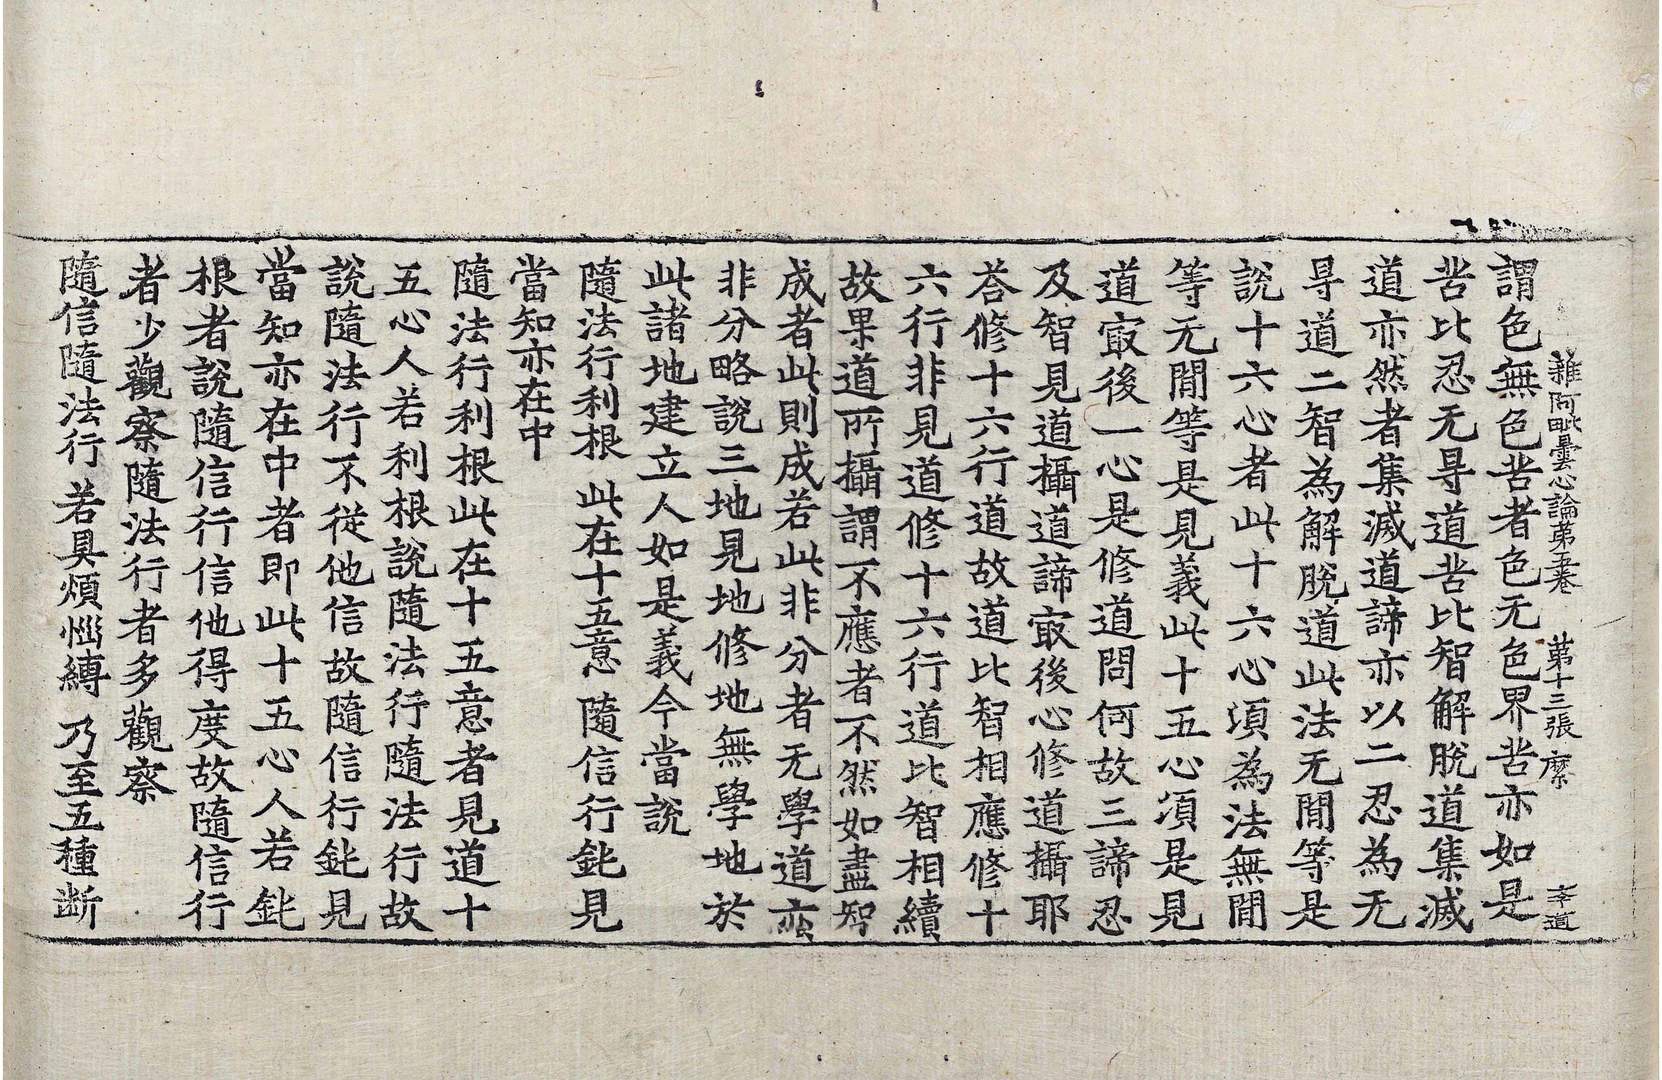 雜阿毗曇心論第五卷 第十三張 縻 孝道
謂色無色苦者色无色界苦亦如是
苦比忍无㝵道苦比智解脫道集滅
道亦然者集滅道諦亦以二忍為无
㝵道二智為解脫道此法无閒等是
說十六心者此十六心湏為法無閒
等无閒等是見義此十五心湏是見
道㝡後一心是修道問何故三諦忍
及智見道攝道諦㝡後心修道攝耶
荅修十六行道故道比智相應修十
六行非見道修十六行道比智相續
故果道所攝謂不應者不然如盡智
成者此則成若此非分者无學道亦
非分略說三地見地修地無學地於
此諸地建立人如是義今當說
隨法行利根 此在十五意 隨信行鈍見
當知亦在中
隨法行利根此在十五意者見道十
五心人若利根說隨法行隨法行故
說隨法行不從他信故隨信行鈍見
當知亦在中者即此十五心人若鈍
根者說隨信行信他得度故隨信行
者少觀察隨法行者多觀察
隨信隨法行 若具煩惱縛 乃至五種斷